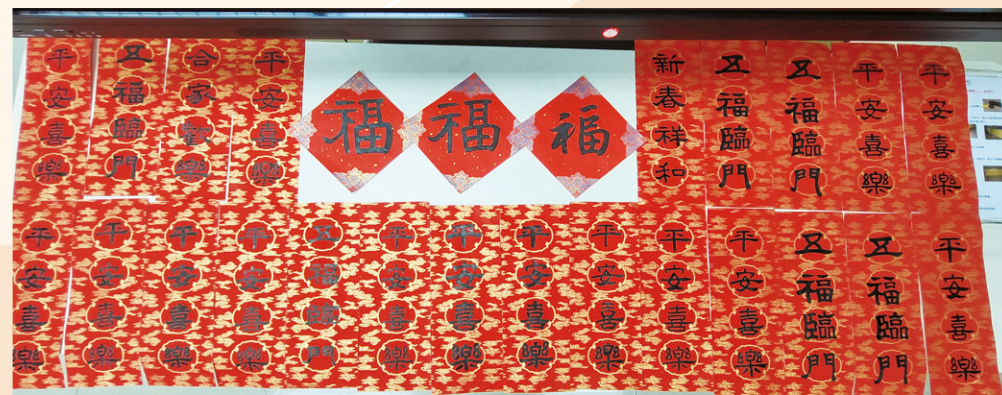 平安喜樂
五福臨門
合家歡樂
平安喜樂
福
福
福
新春祥和
五福臨門
五福臨門
平安喜樂
平安喜樂
平安喜樂
平安喜樂
平安喜樂
平安喜樂
五福臨門
平安喜樂
平安喜樂
平安喜樂
平安喜樂
平安喜樂
平安喜樂
五福臨門
五福臨門
平安喜樂